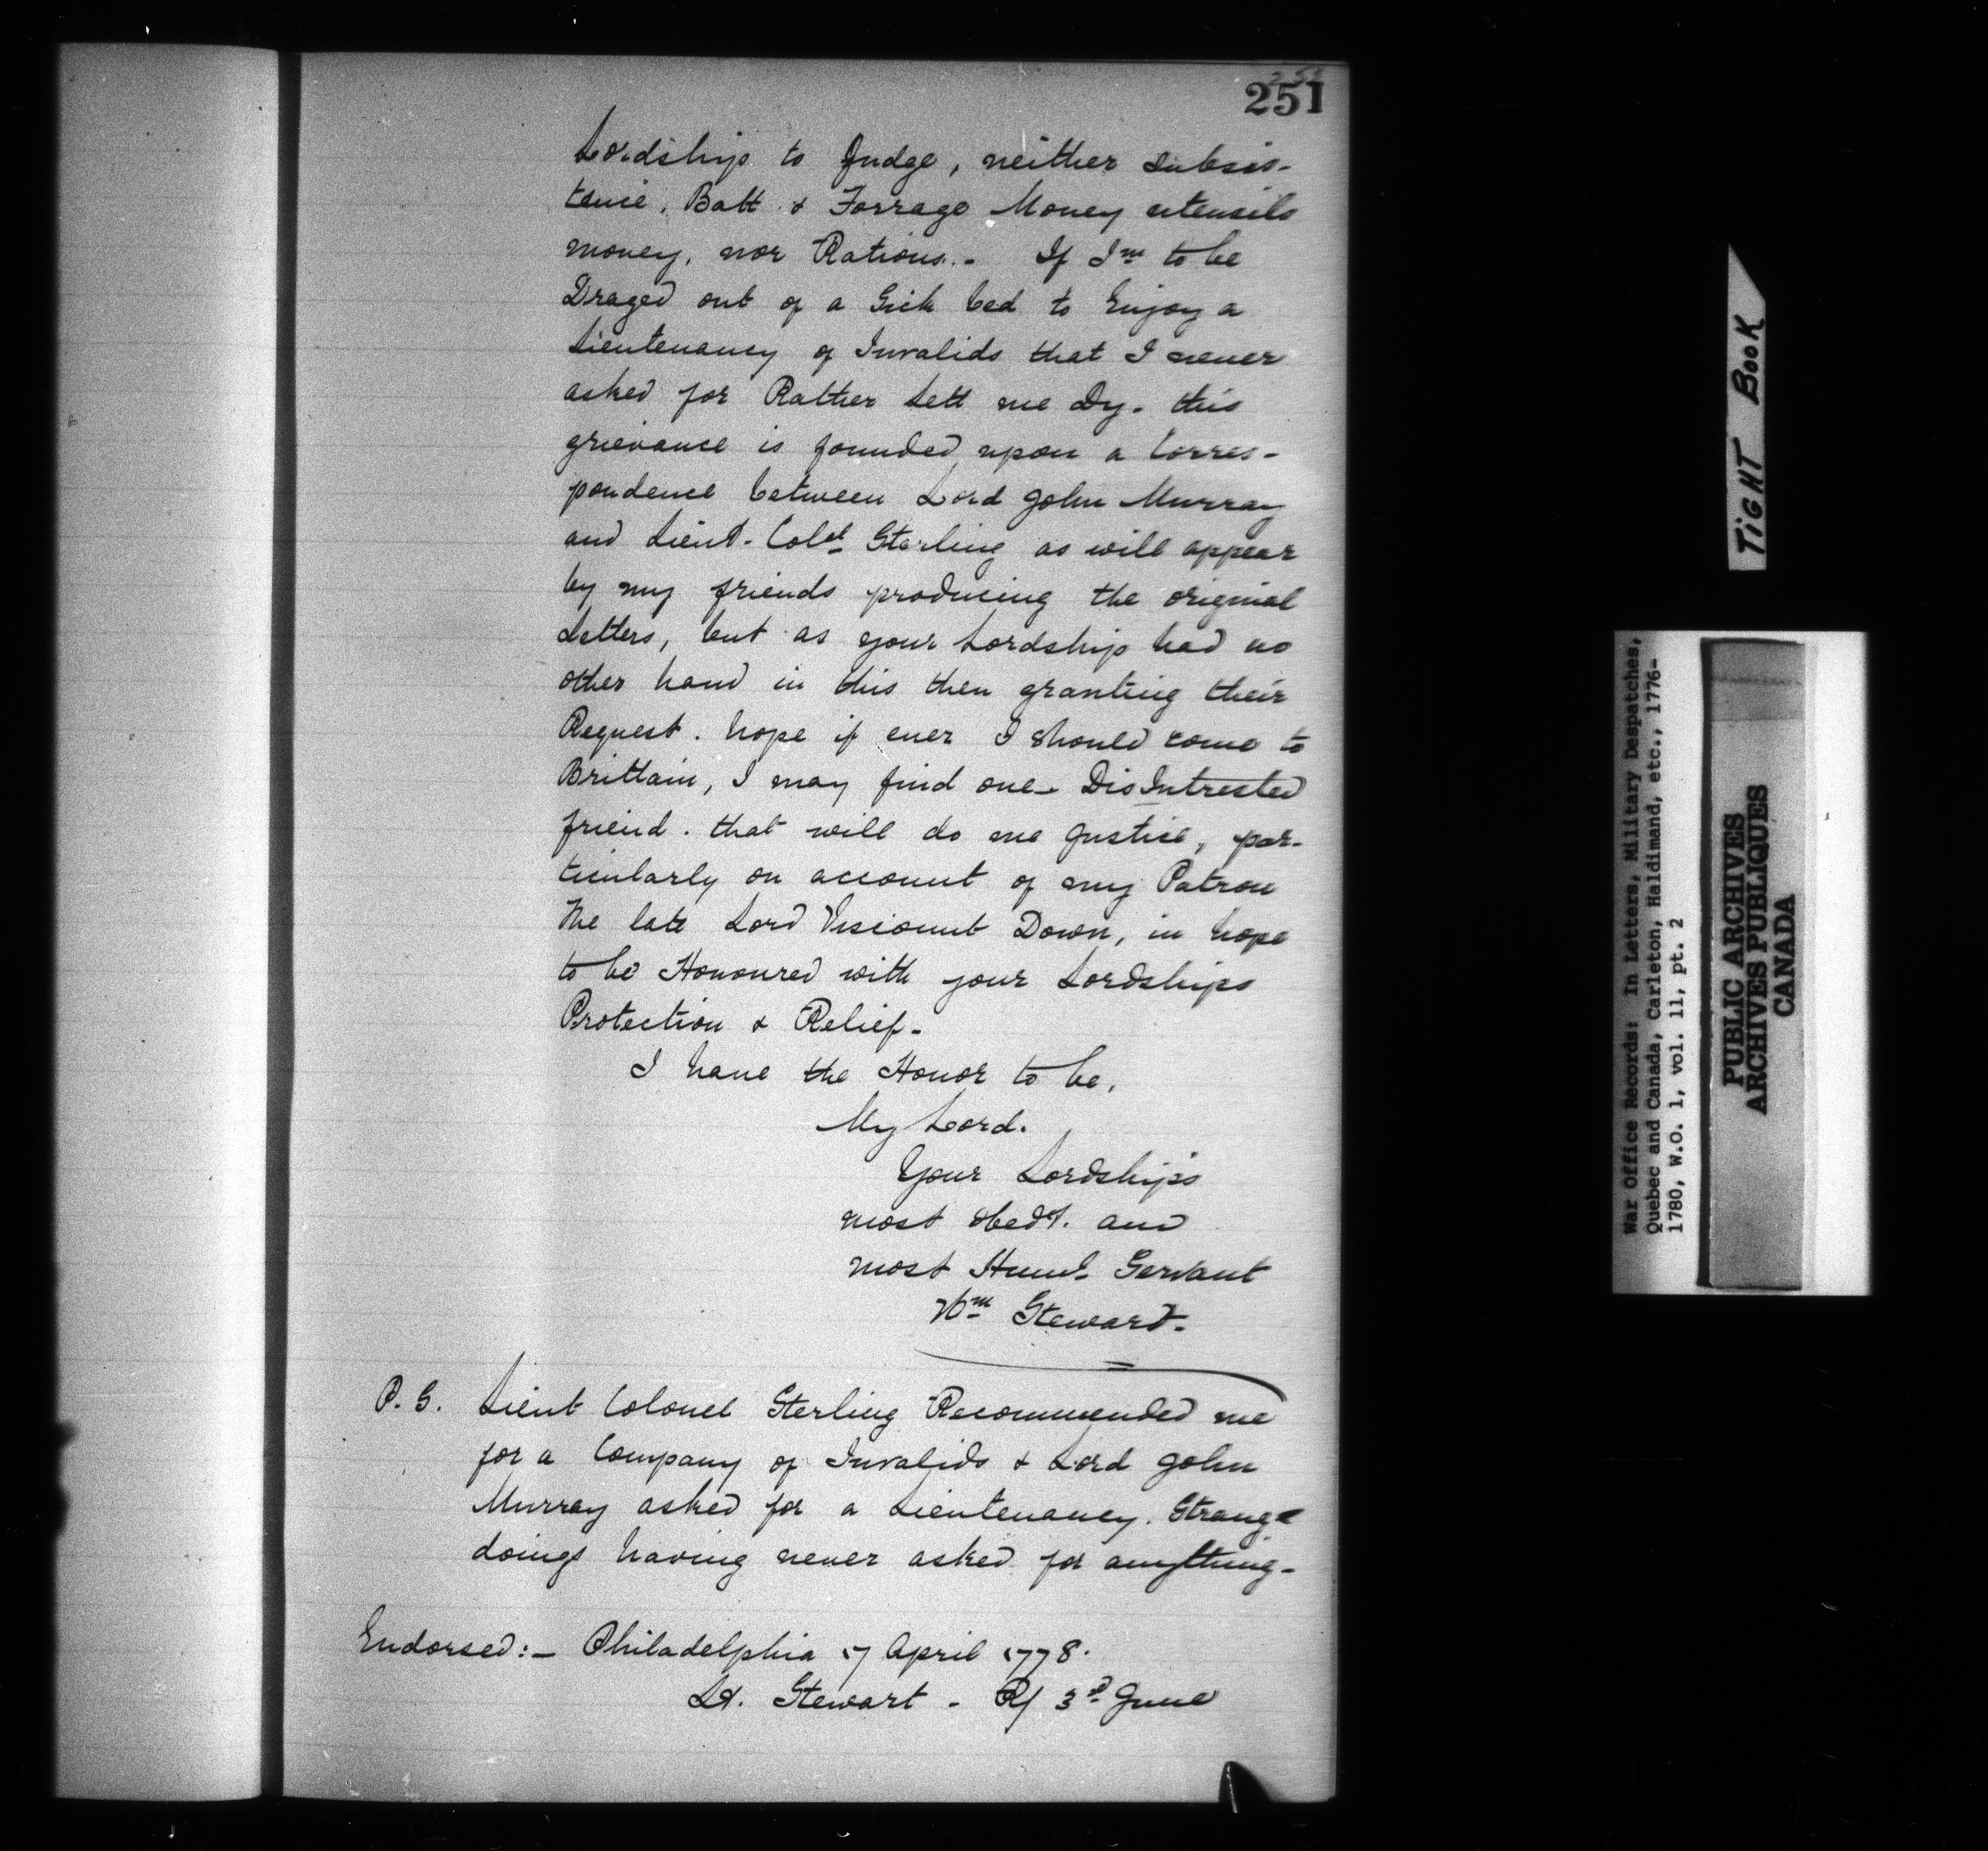 251
Lordship to Judge, neither subsis-
tence, Batt & Forrage Money utensils
money, nor Rations.- If I'm to be
Draged out of a Sick bed to Enjoy a
Lieutenancy of Invalids that I never
asked for Rather Lett me Dy. this
grievance is founded upon a Corres-
pondence between Lord John Murray
and Lieut. Colel Sterling as will appear
by my friends producing the original
Letters, but as your Lordship had no
other hand in this then granting their
Request. hope if ever I should come to
Brittain, I may find one DisIntrested
friend. that will do me Justice, par-
ticularly on account of my Patron
The late Lord Viscount Down, in hope
to be Honoured with your Lordships
Protection & Relief-
I have the Honor to be,
My Lord.
Your Lordship's
most obedt. and
most Huml. Servant
Wm Steward-
P.S. Lieut Colonel Sterling Recommended me
for a Company of Invalids & Lord John
Murray asked for a Lieutenancy. Strange
doings having never asked for anything-
Endorsed:- Philadelphia 17 April 1778.
Lt. Stewart - R/ 3d June
TIGHT BOOK
War Office Records: In Letters, Military Despatches,
Quebec and Canada, Carleton, Haldimand, etc., 1776-
1780, W.O. 1, vol. 11, pt. 2
PUBLIC ARCHIVES
ARCHIVES PUBLIQUES
CANADA